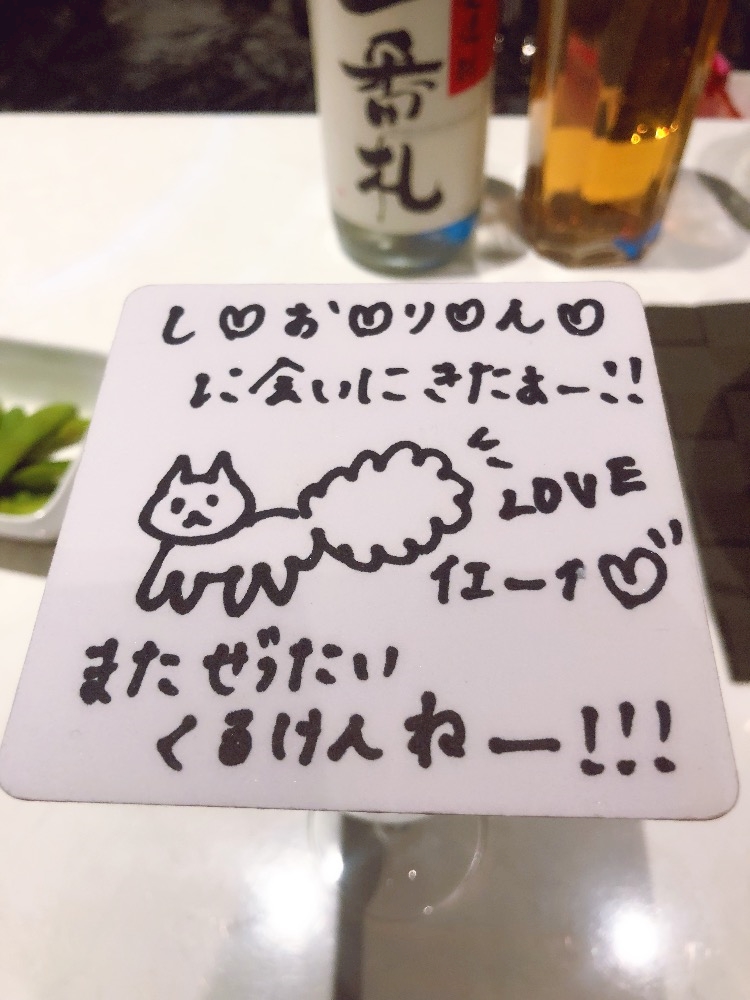 一番札
し♡お♡り♡ん♡
に会いにきたよー!!
LOVE
イエーナ♡
またぜったい
くるけんねー!!!